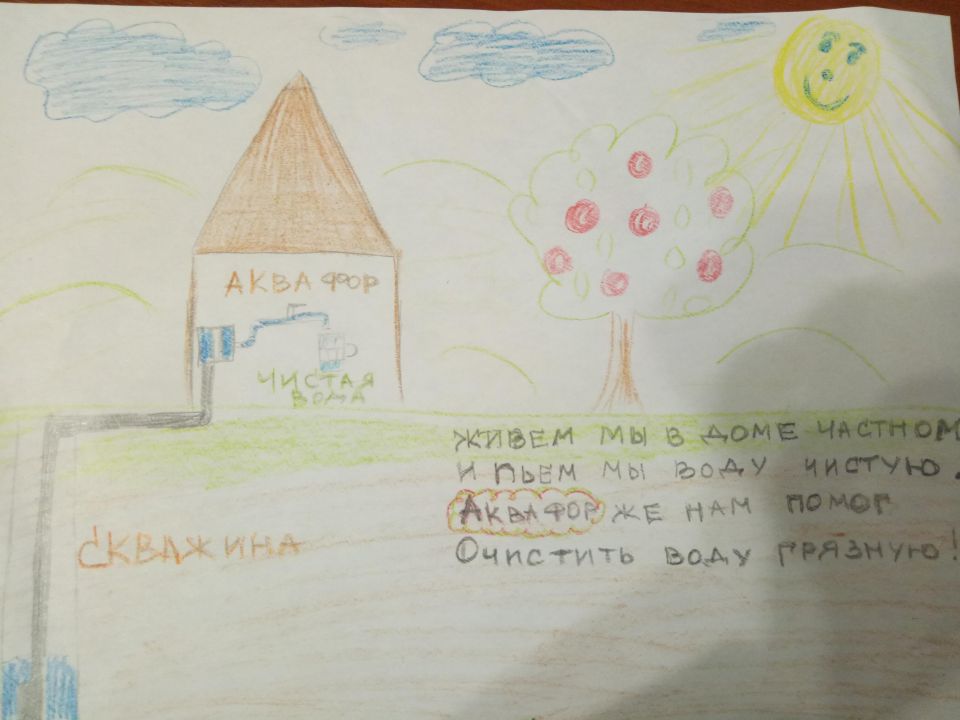 АКВАФОР
ЧИСТАЯ
ВОДА
ЖИВЕМ МЫ В ДОМЕ ЧАСТНОМ
И ПЬЕМ МЫ ВОДУ ЧИСТУЮ.
АКВАФОР ЖЕ НАМ ПОМОГ
ОЧИСТИТЬ ВОДУ ГРЯЗНУЮ!
СКВАЖИНА